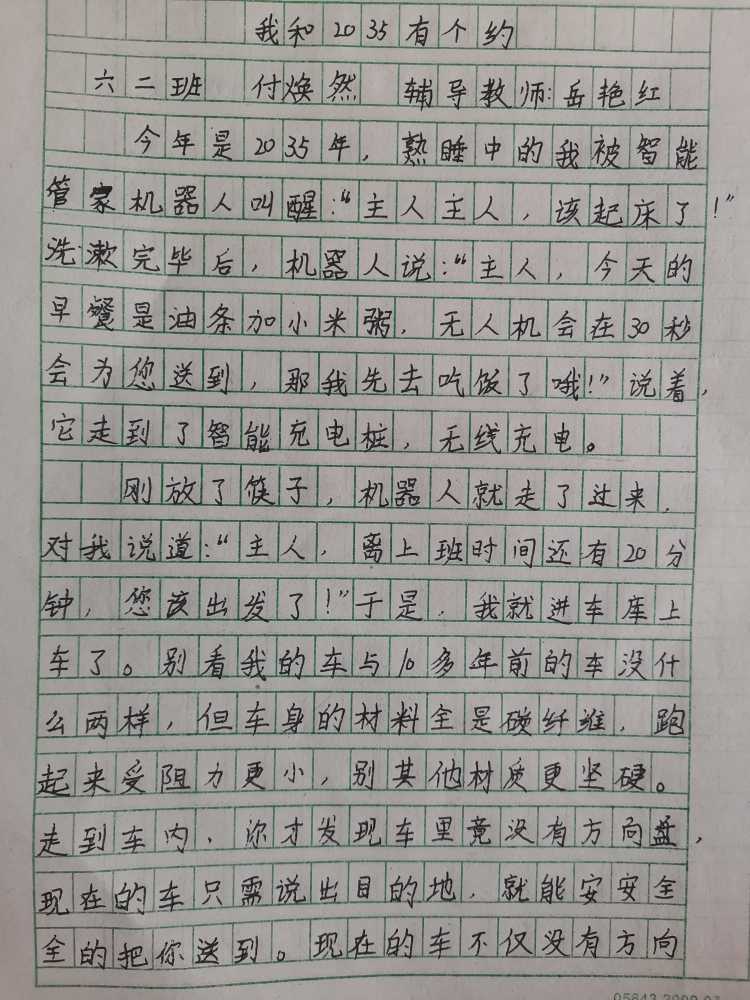 我和2035有个约
六二班 付焕然 辅导教师:岳艳红
今年是2035年，熟睡中的我被智能
管家机器人叫醒:“主人主人，该起床了!”
洗漱完毕后，机器人说:“主人，今天的
早餐是油条加小米粥，无人机会在30秒
会为您送到，那我先去吃饭了哦!”说着，
它走到了智能充电桩，无线充电。
刚放了筷子，机器人就走了过来，
对我说道:“主人，离上班时间还有20分
钟，您该出发了!”于是，我就进车库上
车了。别看我的车与10多年前的车没什
么两样，但车身的材料全是碳纤维，跑
起来受阻力更小，别其他材质更坚硬。
走到车内，你才发现车里竟没有方向盘，
现在的车只需说出目的地，就能安安全
全的把你送到。现在的车不仅没有方向
05643.2009.03